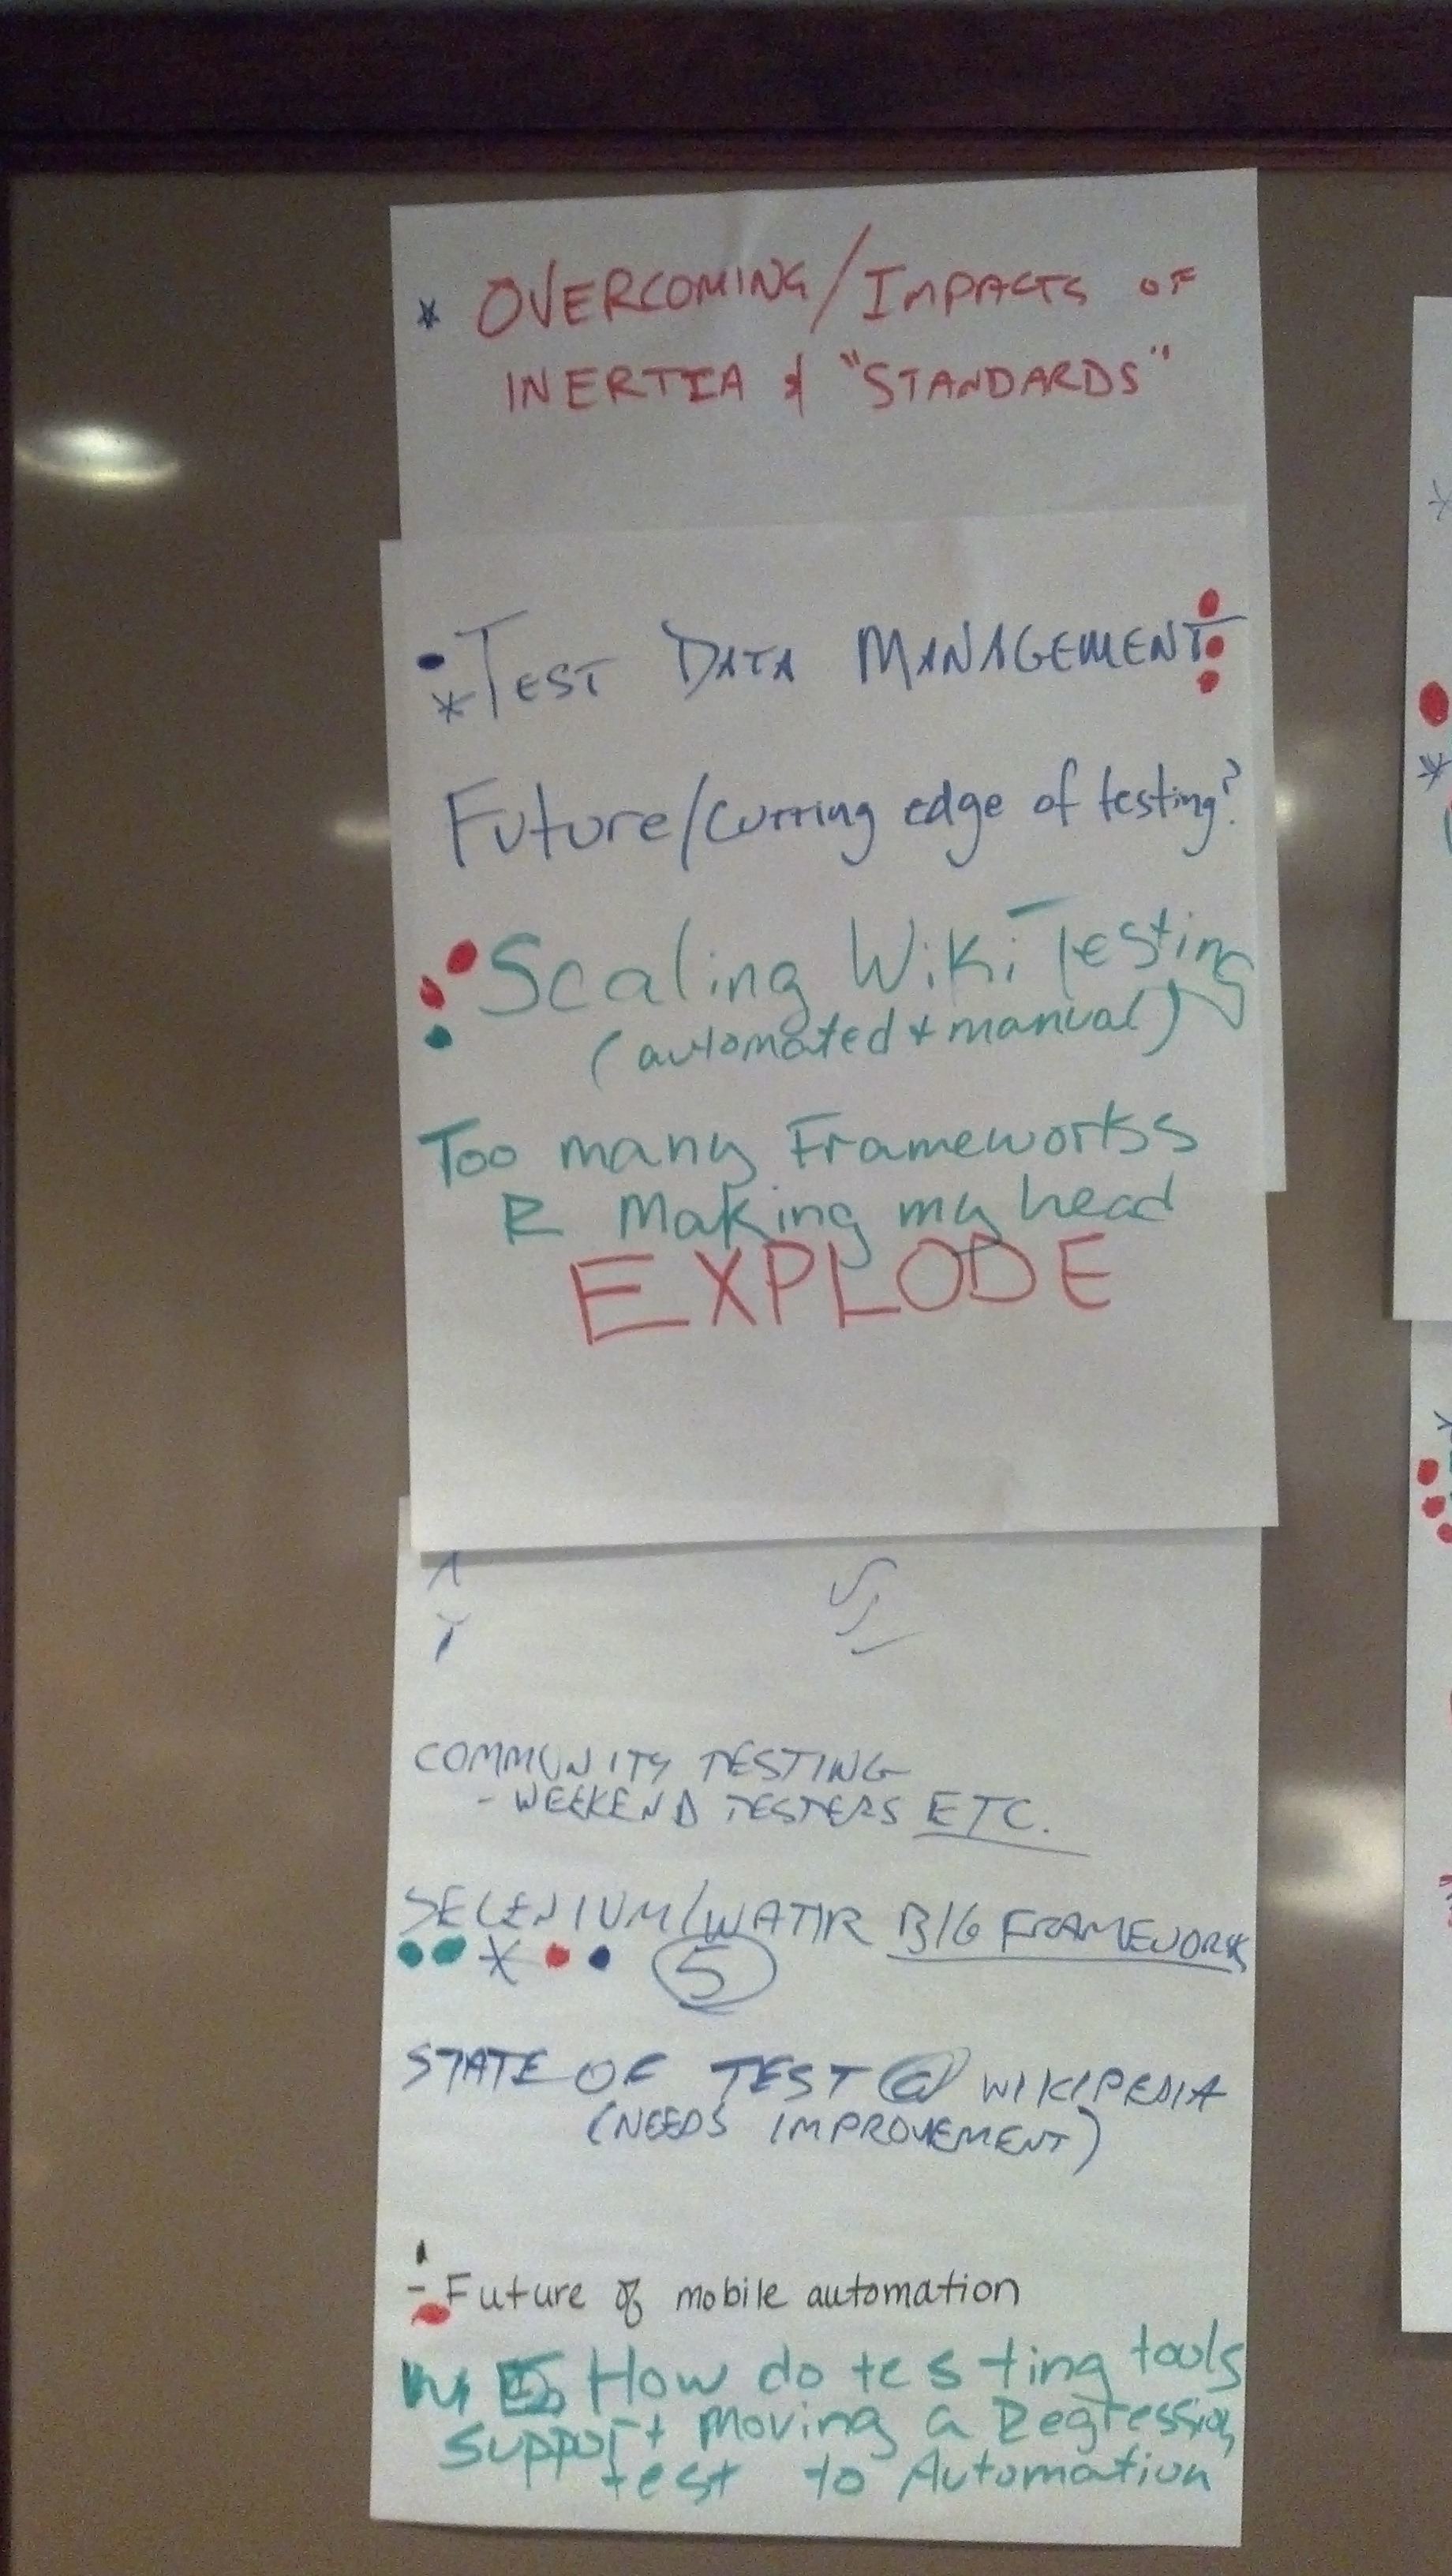 * OVERCOMING/IMPACTS OF
INERTIA & "STANDARDS"
* TEST DATA MANAGEMENT
Future/Cutting edge of testing?
Scaling Wiki Testing
(automated + manual)
Too many Frameworks
R Making my head
EXPLODE
COMMUNITY TESTING
- WEEKEND TESTERS ETC.
SELENIUM/WATIR BIG FRAMEWORK
* 5
STATE OF TEST @ WIKIPEDIA
(NEEDS IMPROVEMENT)
- Future of mobile automation
How do testing tools
support moving a Regression
test to Automation